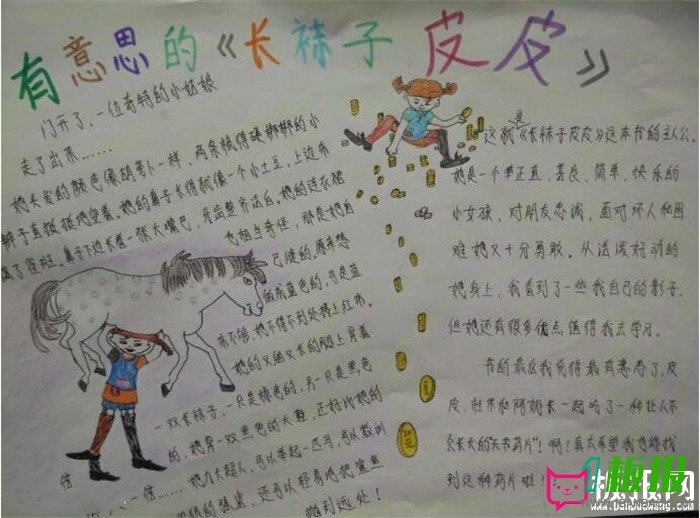 有意思的《长袜子皮皮》
门开了，一位奇特的小姑娘
走了出来……
她头发的颜色像胡萝卜一样，两条梳得硬梆梆的小
辫子直挺挺地竖着。她的鼻子长得就像一个小土豆，上边布
满了雀斑。鼻子下边长着一张大嘴巴，牙齿整齐洁白。她的连衣裙
也相当奇怪，那是她自
己缝的。原来想
做成蓝色的，可是蓝
布不够，她不得不到处缝上红布。
她的又细又长的腿上穿着
一双长袜子，一只是棕色的，另一只是黑色
的，她穿一双黑色的大鞋，正好比她的
她力大超人，可以举起一匹马，可以教训
的强盗，还可以轻易地把鲨鱼
抛到远处！
这就是《长袜子皮皮》这本书的主人公。
她是一个正直、善良、简单、快乐的
小女孩，对朋友忠诚，面对坏人和困
难她又十分勇敢。从活泼好动的
她身上，我看到了一些我自己的影子，
但她还有很多优点值得我去学习。
书的最后我觉得最有意思了，皮
皮、杜米和阿妮卡一起吃了一种让人不
会长大的
到这种药片啦！
板报网
www.banbaowang.com